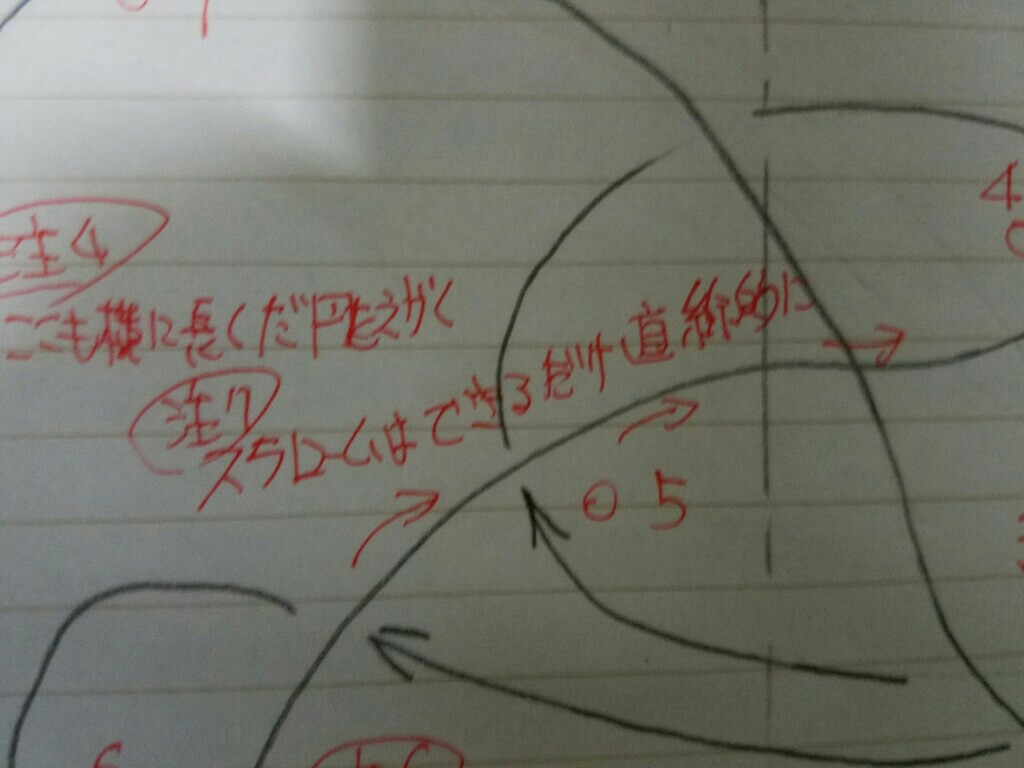 注4
ここも横に長くだ円をえがく
注7
スラロームはできるだけ直線的に
4
5